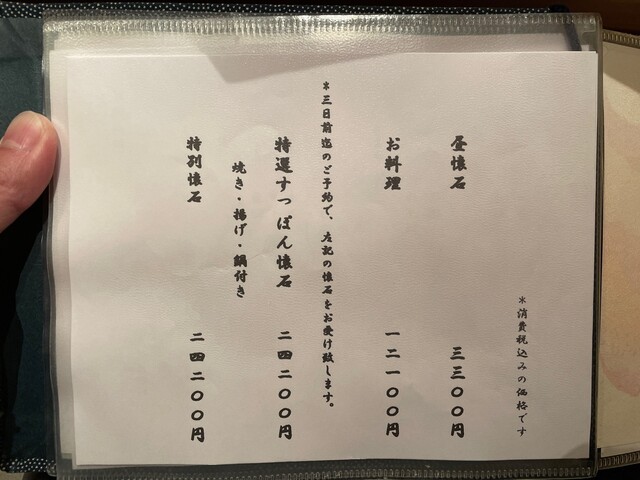 ＊消費税込みの価格です
昼懐石 三三〇〇円
お料理 一二一〇〇円
＊三日前迄のご予約で、左記の懐石をお受け致します。
特選すっぽん懐石 二四二〇〇円
焼き・揚げ・鍋付き
特別懐石 二四二〇〇円